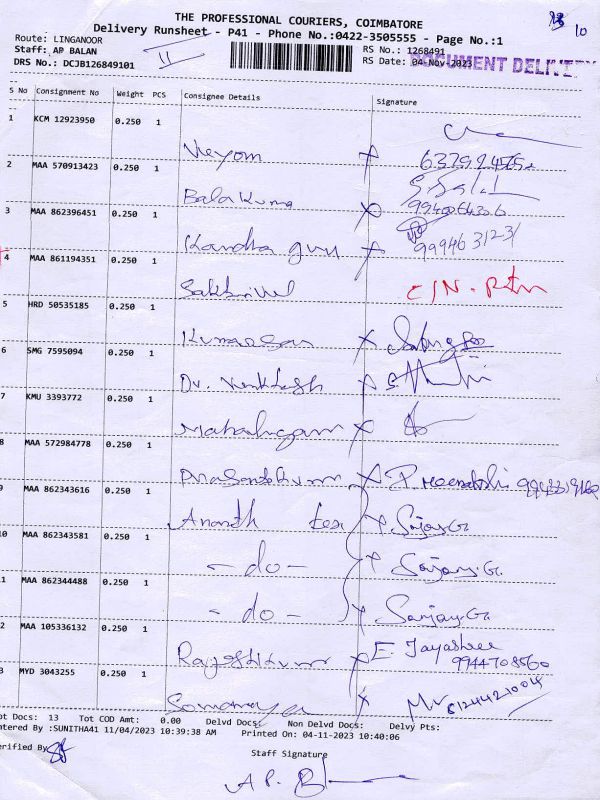 THE PROFESSIONAL COURIERS, COIMBATORE
10
Delivery Runsheet - P41 - Phone No.:0422-3505555 - Page No.:1
Route: LINGANOOR
RS No.: 1268491
Staff: AP BALAN
II
RS Date: 04-Nov-2023
DOCUMENT DELIVERY
DRS No.: DCJB126849101
S No Consignment No Weight PCS Consignee Details Signature
1 KCM 12923950 0.250 1
2 MAA 570913423 0.250 1
Balakuma
3 MAA 862396451 0.250 1
Kandha guru 9994631231
4 MAA 861194351 0.250 1
Sakthivel C/N. Rtn
5 HRD 50535185 0.250 1
Kumaresan
6 SMG 7595094 0.250 1
Dr. Venktesh
7 KMU 3393772 0.250 1
Mahalingam
8 MAA 572984778 0.250 1
Prasanthkumar P. Meenakshi
9 MAA 862343616 0.250 1
Ananth tex Sanjay.G.
10 MAA 862343581 0.250 1
- do - Sanjay.G.
11 MAA 862344488 0.250 1
- do - Sanjay.G.
2 MAA 105336132 0.250 1
Rajeshkumar E. Jayashree
9944708560
3 MYD 3043255 0.250 1
ot Docs: 13 Tot COD Amt: 0.00 Delvd Docs: Non Delvd Docs: Delvy Pts:
ntered By :SUNITHA41 11/04/2023 10:39:38 AM Printed On: 04-11-2023 10:40:06
erified By
Staff Signature
A.P.